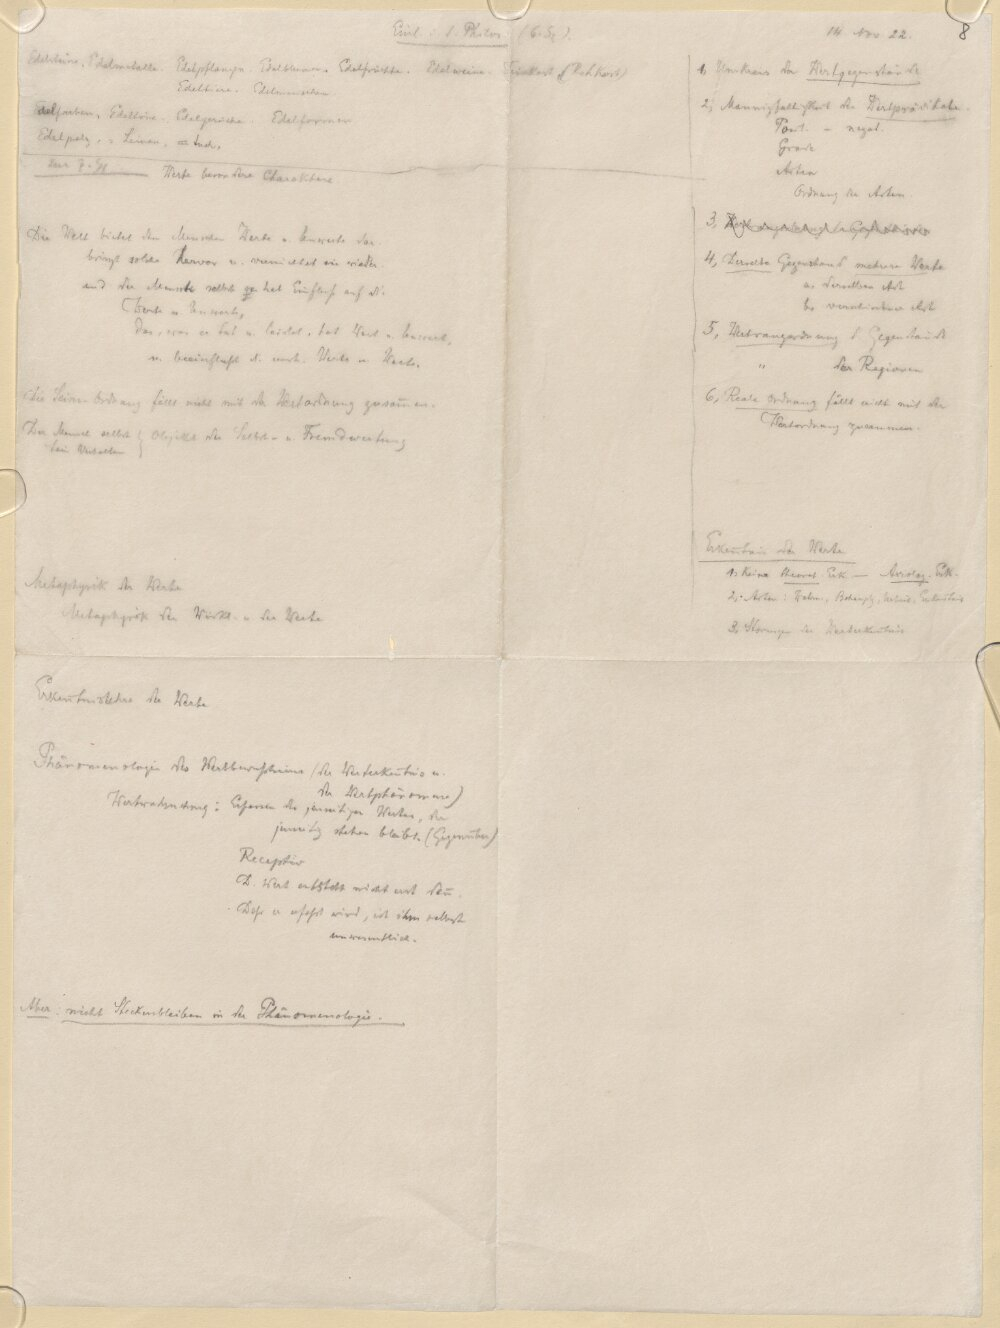 Einl. i. d. Philos. (6. St.).
14 Nov 22.
8
Edelsteine. Edelmetalle. Edelpflanzen. Edelblumen. Edelfrüchte. Edelweine. (Rohkost)
Edeltiere. Edelmenschen
Edelfarben, Edeltöne. Edelgerüche. Edelformen
Edelpelz,
Werte besondere Charaktere
Die Welt bietet den Menschen Werte u. Unwerte dar.
bringt solche hervor u. vernichtet sie wieder.
und der Mensch selbst hat Einfluß auf d.
Werte u. Unwerte,
Das, was er tut u. leidet, hat Wert u. Unwert,
u. beeinflußt d. Werte u.
Die Seinsordnung fällt nicht mit der Wertordnung zusammen.
Der Mensch selbst } Objekt der Selbst- u. Fremdwertung
sein Verhalten
Metaphysik der Werte
Metaphysik der Wirkl. u. der Werte
Erkenntnislehre der Werte
Phänomenologie des Wertbewußtseins (der Werterkenntnis u.
der Wertphänomene)
Wertwahrnehmung: Erfassen des jenseitigen Wertes, der
jenseitig stehen bleibt. (Gegenüber)
Receptiv
D. Wert entsteht nicht erst dann.
Daß er erfaßt wird, ist ihm selbst
unwesentlich.
Aber: nicht Steckenbleiben in der Phänomenologie.
1, Umkreis der Wertgegenstände
2, Mannigfaltigkeit der Wertprädikate.
Posit. – negat.
Grade
Arten
Ordnung der Arten
3,
4, Derselbe Gegenstand mehrere Werte
a, derselben Art
b, verschiedener Art
5, Wertrangordnung d. Gegenstände
" der Regionen
6, Reale Ordnung fällt nicht mit der
Wertordnung zusammen.
Erkenntnis der Werte
1, Keine theoret. Erk. — Axiolog. Erk.
2, Arten: Wahrn.,
3, Störungen der Werterkenntnis